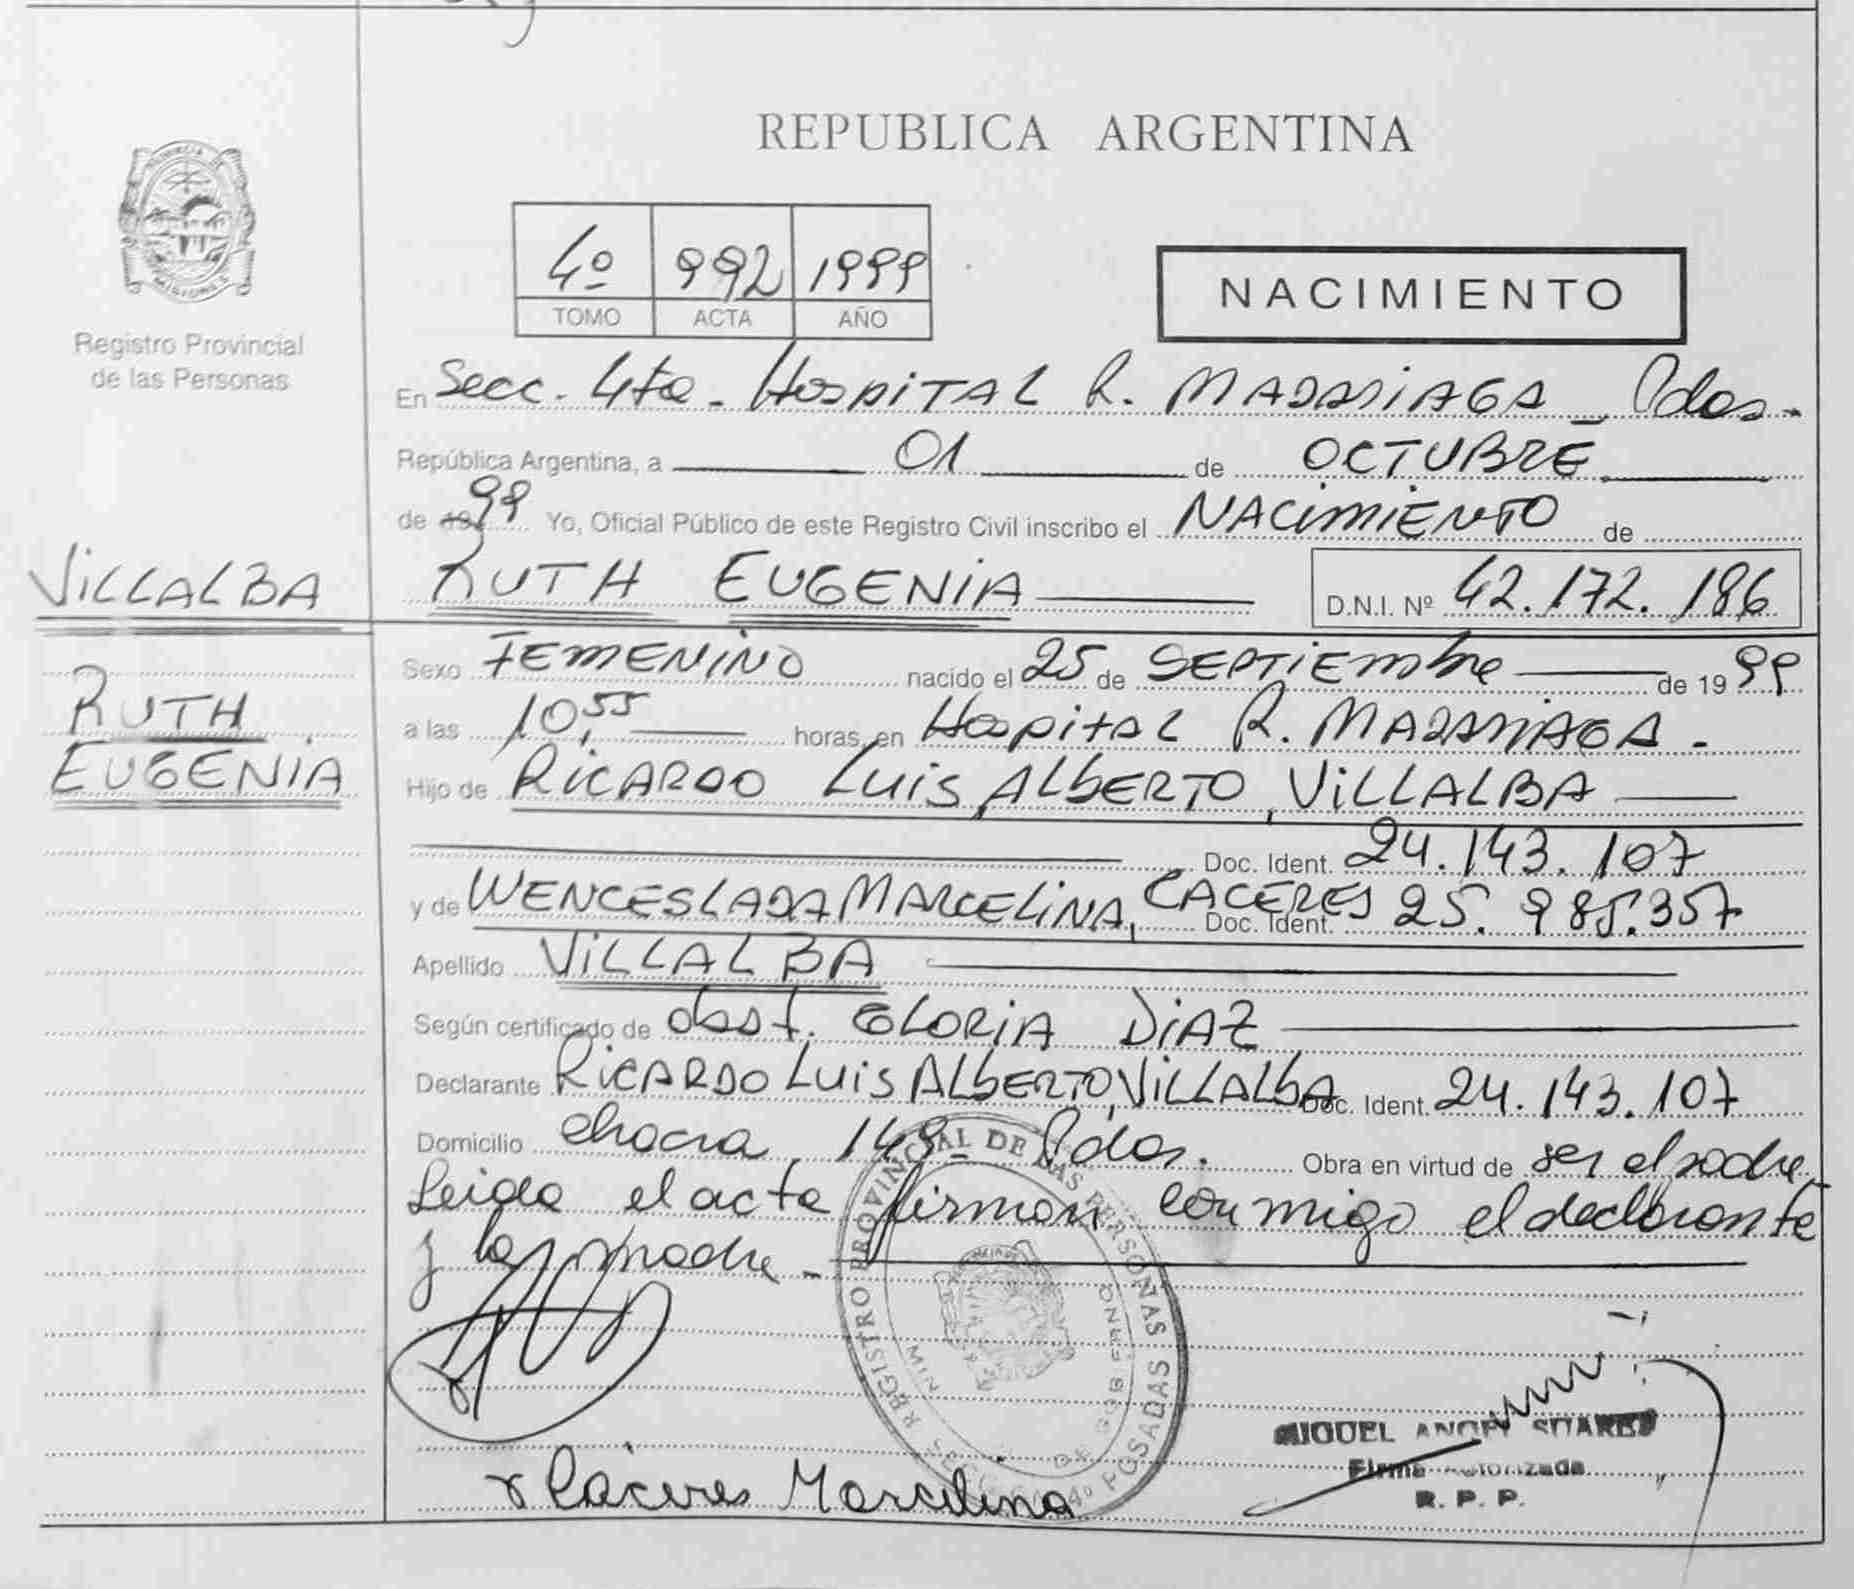 REPUBLICA ARGENTINA
PROVINCIA DE MISIONES
Registro Provincial
de las Personas
4º 992 1999
TOMO ACTA AÑO
NACIMIENTO
En Secc. 4ta - Hospital R. MADARIAGA - Pdas -
República Argentina, a 01 de OCTUBRE
de 1999 Yo, Oficial Público de este Registro Civil inscribo el NACIMIENTO de
VILLALBA
RUTH EUGENIA D.N.I. Nº 42.172.186
RUTH
EUGENIA
Sexo FEMENINO nacido el 25 de SEPTIEMbre de 1999
a las 10,55 horas, en Hospital R. MADARIAGA -
Hijo de RICARDO LUIS ALBERTO, VILLALBA
Doc. Ident. 24.143.107
y de WENCESLADA MARCELINA, CACERES Doc. Ident. 25.985.357
Apellido VILLALBA
Según certificado de obst. GLORIA DIAZ
Declarante RICARDO LUIS ALBERTO, VILLALBA Doc. Ident. 24.143.107
Domicilio chacra 148 - Pdas. Obra en virtud de ser el padre
Leida el acta firman conmigo el declarante
y la madre -
REGISTRO PROVINCIAL DE LAS PERSONAS
POSADAS
MIGUEL ANGEL SUAREZ
Firma Autorizada
R. P. P.
Cáceres Marcelina